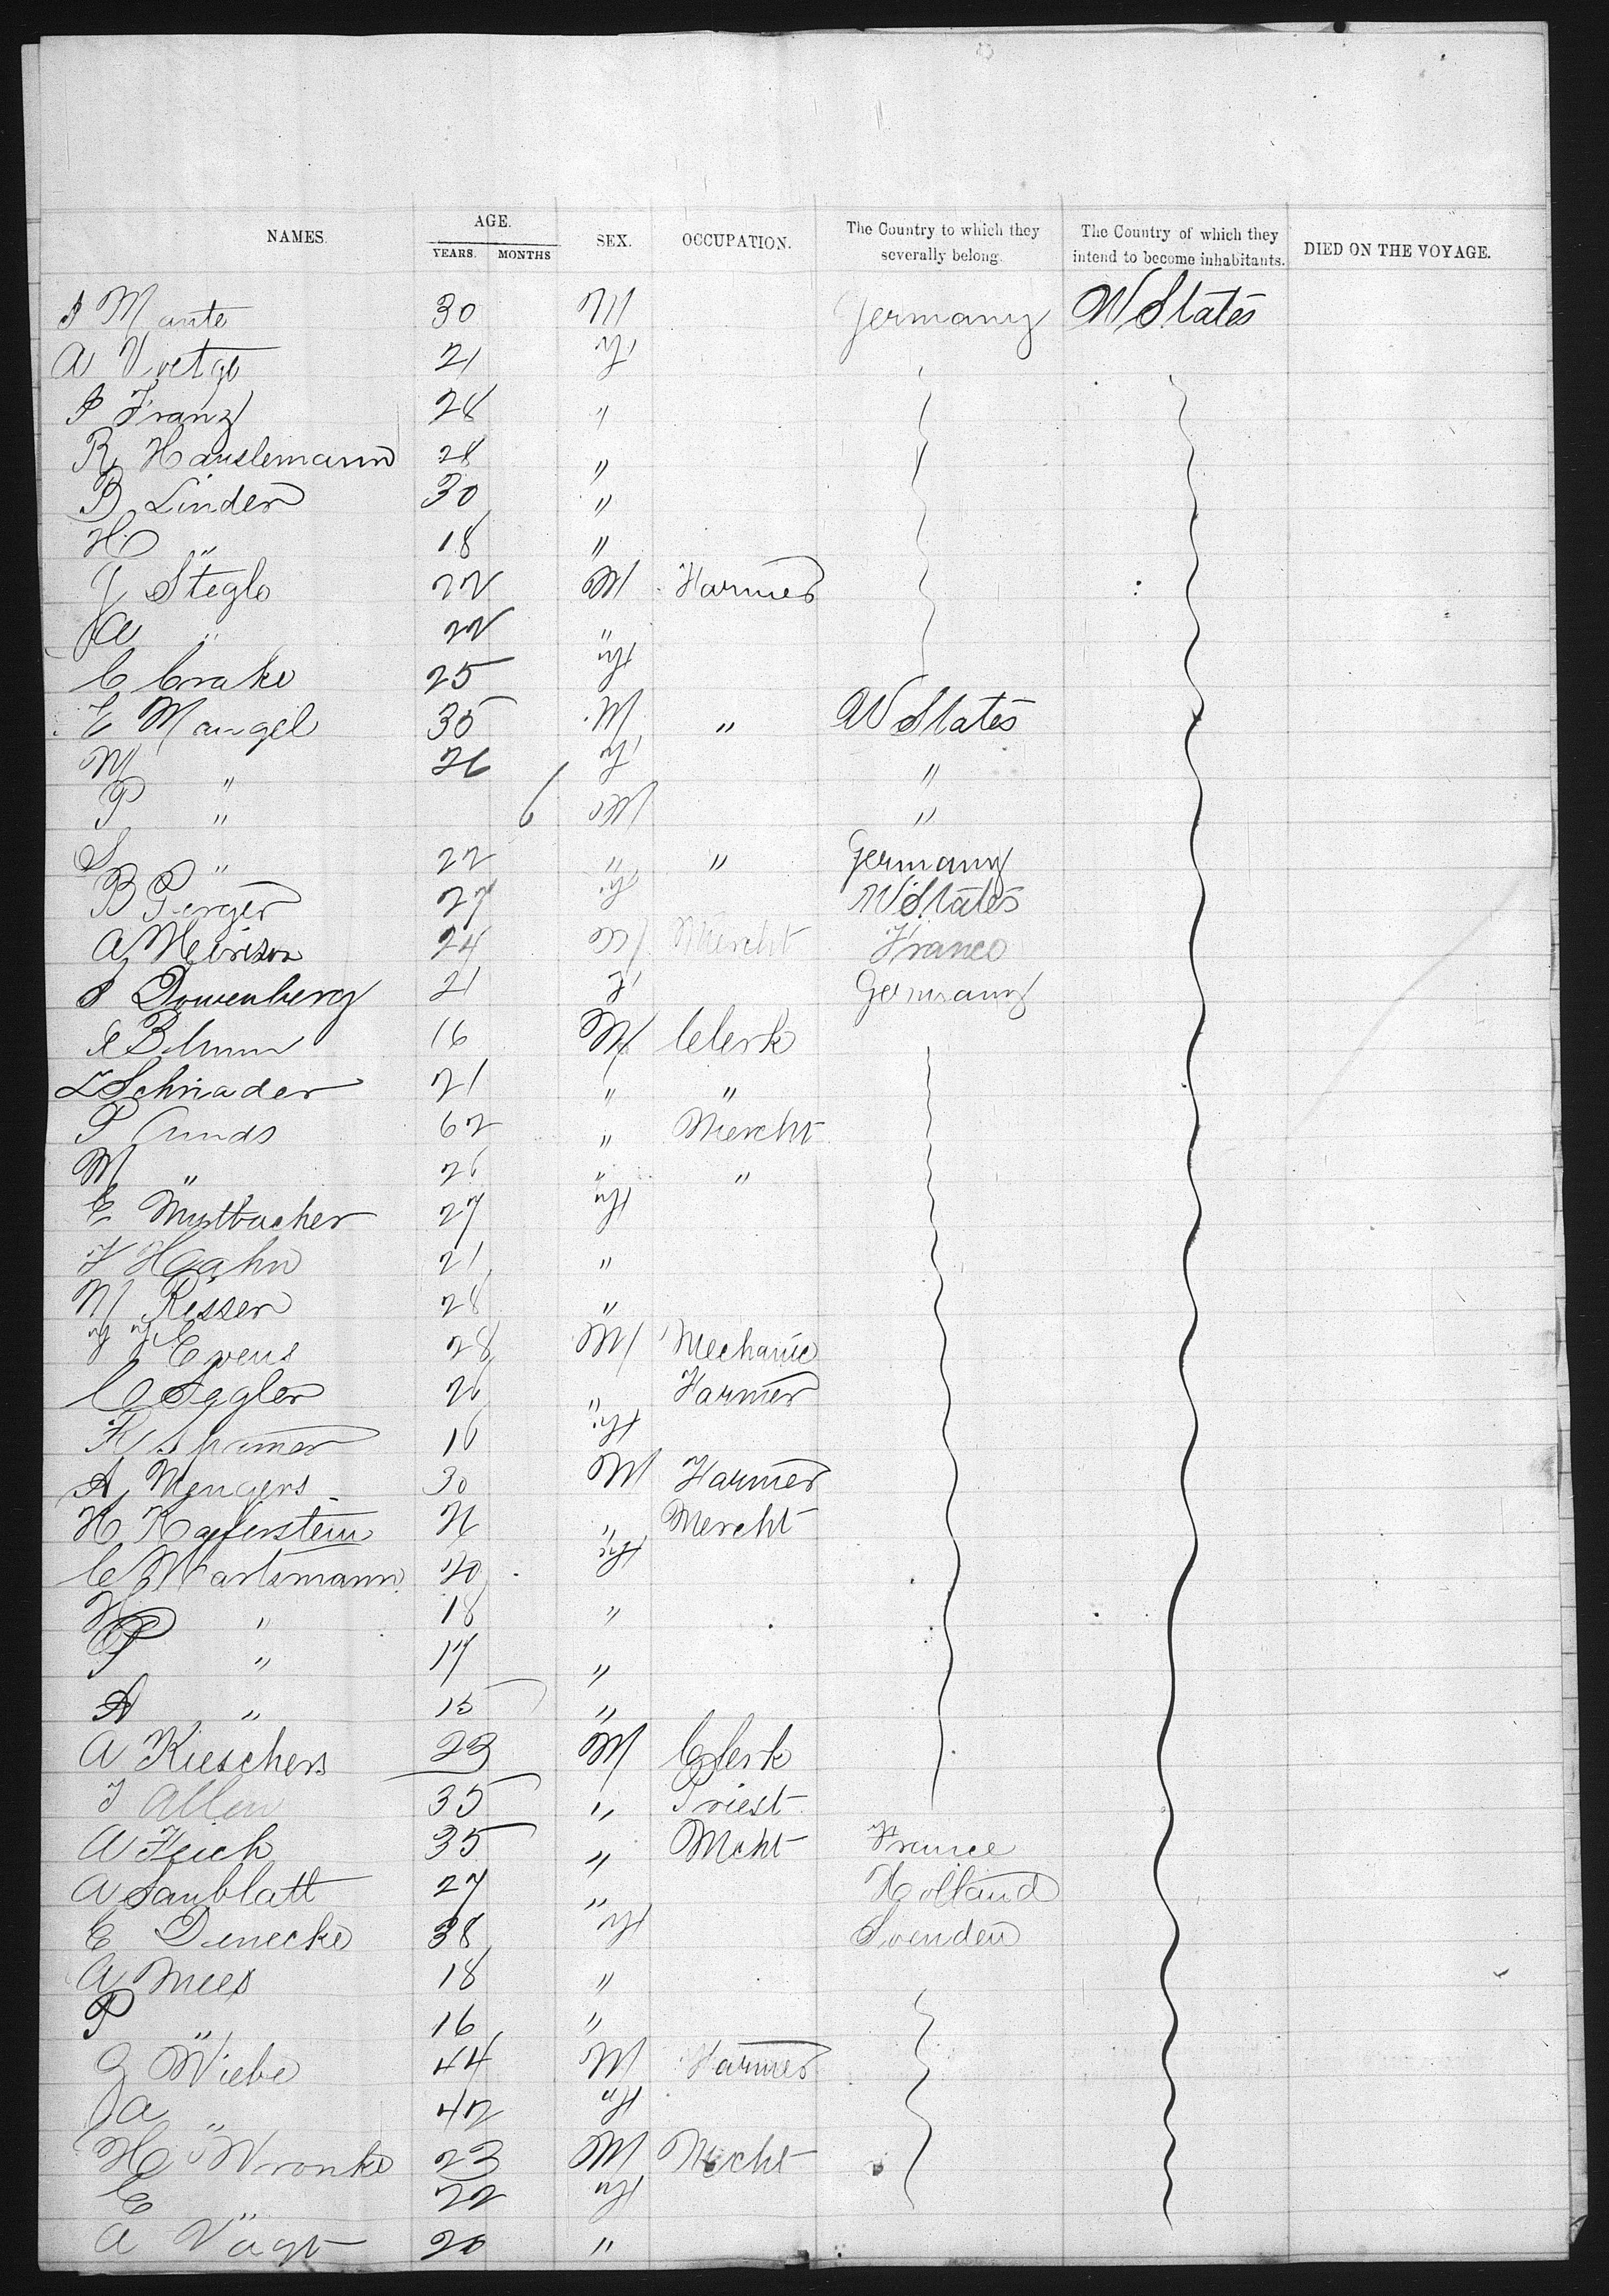 NAMES. AGE. YEARS. MONTHS SEX. OCCUPATION. The Country to which they severally belong. The Country of which they intend to become inhabitants. DIED ON THE VOYAGE.
Mante 30 M Germany U States
A Voetge 21 F
Franz 28 "
R Hauslemann 28 "
B Linder 30 "
H " 18 "
J Steglo 22 M Farmer
A " 22 "
C Crake 25 F
E Mangel 35 M " U States
M " 26 F "
P " 6 M "
S " 22 " " Germany
B Perger 27 F U States
A 24 M Mercht France
Dowenberg 21 F Germany
Blum 16 M Clerk
L Schrader 21 " "
P Cunds 62 " Mercht
M " 26 " "
E 27 F
F Haahn 21 "
M Risser 28 "
Evens 28 M Mechanic
C Segler 26 " Farmer
K 16 F
A Mengers 30 M Farmer
H Kaferstein " Mercht
C Martsmann 20 F
" 18 "
P " 17 "
A " 15 "
A Kieschers 23 M Clerk
J Allen 35 " Priest
A 35 " Mcht France
A Sanblatt 27 " Holland
E Denecke 38 F Sweden
A Mees 18 "
P " 16 "
G Wiebe 44 M Farmer
A " 42 F
H Wronke 23 M Mecht
E " 22 F
A Vagt 20 "